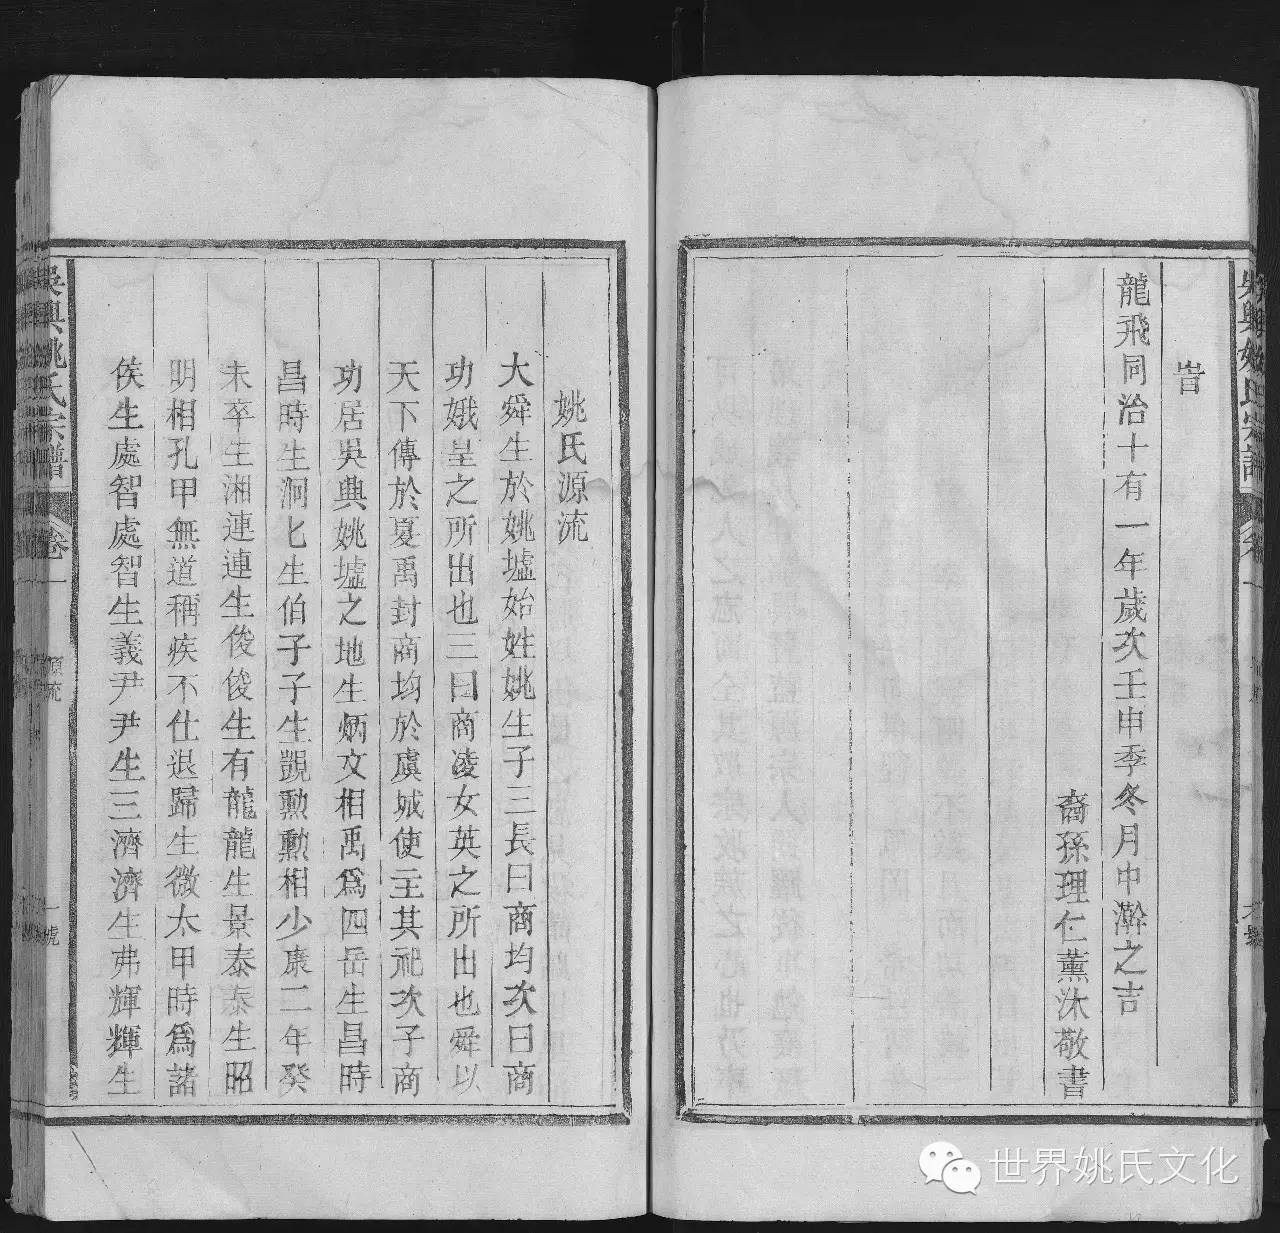 旹
龍飛同治十有一年歲次壬申季冬月中澣之吉
裔孫理仁薰沐敬書
姚氏源流
大舜生於姚墟始姓姚生子三長曰商均次曰商
功娥呈之所出也三曰商凌女英之所出也舜以
天下傳於夏禹封商均於虞城使主其祀次子商
功居吳興姚墟之地生炳文相禹爲四岳生昌時
昌時生泂匕生伯子子生覬勲勲相少康二年癸
未卒生湘連連生俊俊生有龍龍生景泰泰生昭
明相孔甲無道稱疾不仕退歸生微太甲時爲諸
侯生處智處智生義尹尹生三濟濟生弗輝輝生
吳興姚氏宗譜
卷一
源流
一號
吳興姚氏宗譜
卷一
世界姚氏文化